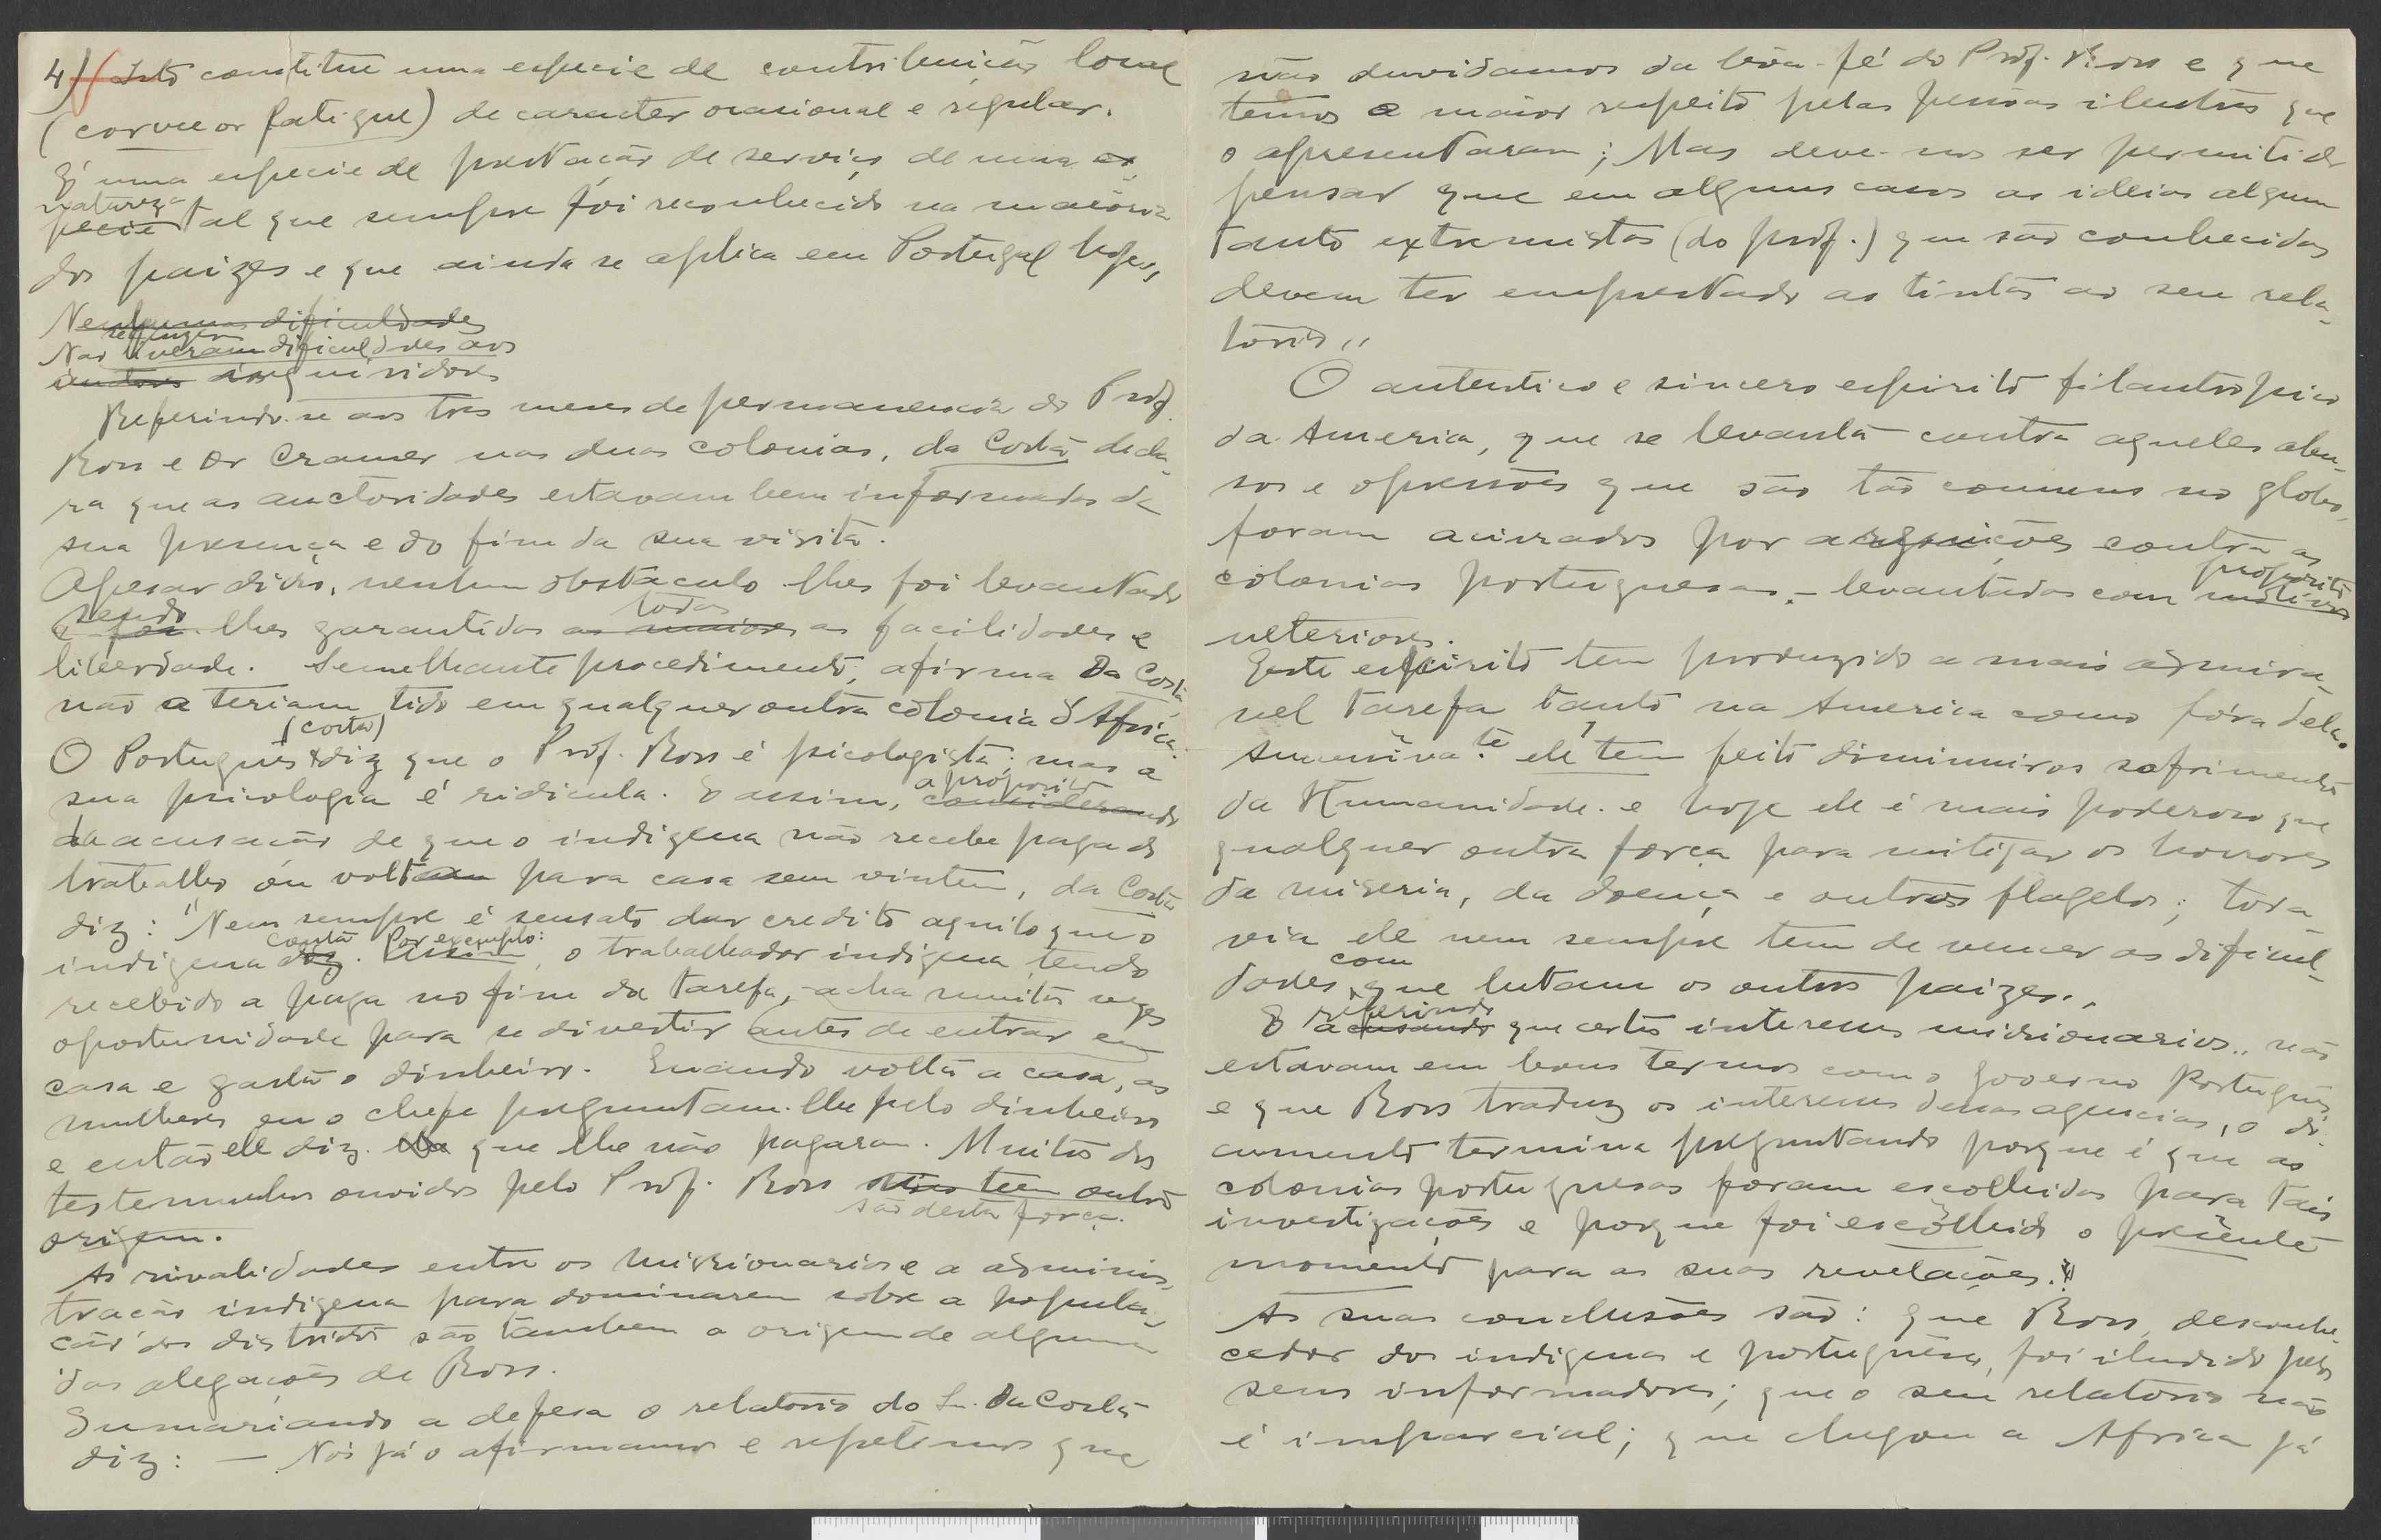 4) Isto constitue uma especie de contribuição local
(corvee or fatigue) de caracter ocasional e regular.
É uma especie de prestação de serviço de uma es-
natureza
pecie tal que sempre foi reconhecido na maioria
dos paizes e que ainda se aplica em Portugal hoje,,
Nenhumas dificuldades
Não tiveram dificuldades aos
inquiridores
Referindo-se aos tres meses de permanencia do Prof.
Ross e Dr Cramer nas duas colonias, da Costa decla-
ra que as auctoridades estavam bem informadas da
sua presença e do fim da sua visita.
Apesar disso, nenhum obstaculo lhes foi levantado
sendo todas
e foi-lhes garantidas as maiores as facilidades e
liberdade. Semelhante procedimento, afirma Da Costa
não a teriam tido em qualquer outra colonia d'Africa.
(Costa)
O Português diz que o Prof. Ross é psicologista; mas a
a proposito
sua psicologia é ridicula. E assim, considerando
da acusação de que o indigena não recebe paga do
trabalho ou voltam para casa sem vintem, da Costa
diz: "Nem sempre é sensato dar credito aquilo que o
conta Por exemplo:
indigena diz. Assim, o trabalhador indigena tendo
recebido a paga no fim da tarefa, acha muitas vezes
oportunidade para se divertir antes de entrar em
casa e gasta o dinheiro. Quando volta a casa, as
mulheres ou o chefe preguntam-lhe pelo dinheiro
e então ele diz que lhe não pagaram. Muitos dos
testemunhos ouvidos pelo Prof. Ross não teem outra
são desta força.
origem.
As rivalidades entre os missionarios e a adminis-
tração indigena para dominarem sobre a popula-
ção dos distritos são tambem a origem de algumas
das alegações de Ross.
Sumariando a defesa o relatorio do Sr. Da Costa
diz: — Nós já o afirmamos e repetimos que
não duvidamos da bôa-fé do Prof. Ross e que
temos o maior respeito pelas pessoas ilustres que
o apresentaram; Mas deve-nos ser permitido
pensar que em alguns casos as ideias algum
tanto extremistas (do prof.) que são conhecidas
devem ter emprestado as tintas ao seu rela-
torio,,
O autentico e sincero espirito filantropico
da America, que se levanta contra aqueles abu-
sos e opressões que são tão comuns no globo,
foram acirrados por arguições contra as
colonias portuguesas, - levantadas com motivos
proposito
ulteriores.
Este espirito tem produzido a mais admira-
vel tarefa tanto na America como fóra dela.
Sucessivate ele tem feito diminuir os sofrimentos
da Humanidade. e hoje ele é mais poderoso que
qualquer outra força para mitigar os horrores
da miseria, da doença e outros flagelos; toda
via ele nem sempre tem de vencer as dificul-
com
dades que lutam os outros paizes.,
referindo
E acusando que certos interesses missionarios,, não
estavam em bons termos com o governo Português
e que Ross traduz os interesses dessas agencias, o do-
cumento termina preguntando porque é que as
colonias portuguesas foram escolhidas para tais
investigações e porque foi escolhido o presente
momento para as suas revelações.
As suas conclusões são: que Ross, desconhe-
cedor dos indigenas e português, foi iludido pelos
seus informadores; que o seu relatorio não
é imparcial; que chegou a Africa já